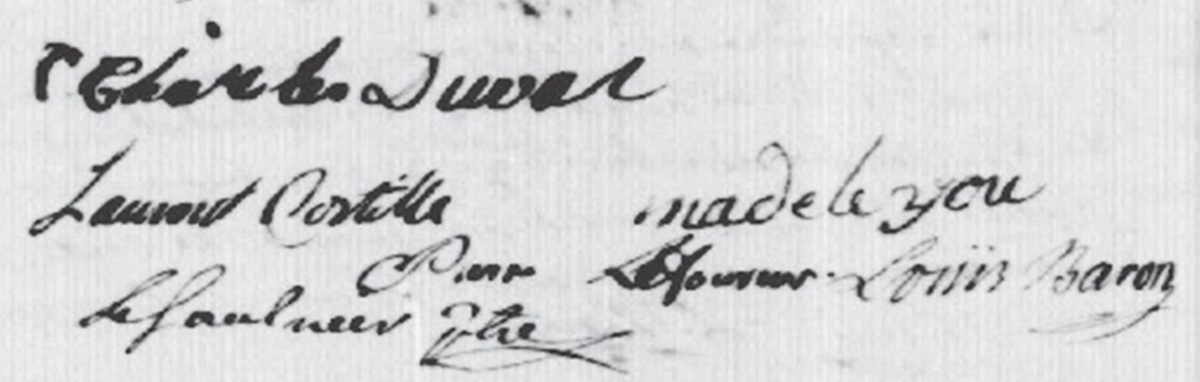 Charles Duval
Laurent Costille madeleyou
Pierre Lefourrier Louïis Baron
Lefaulneer Ptre